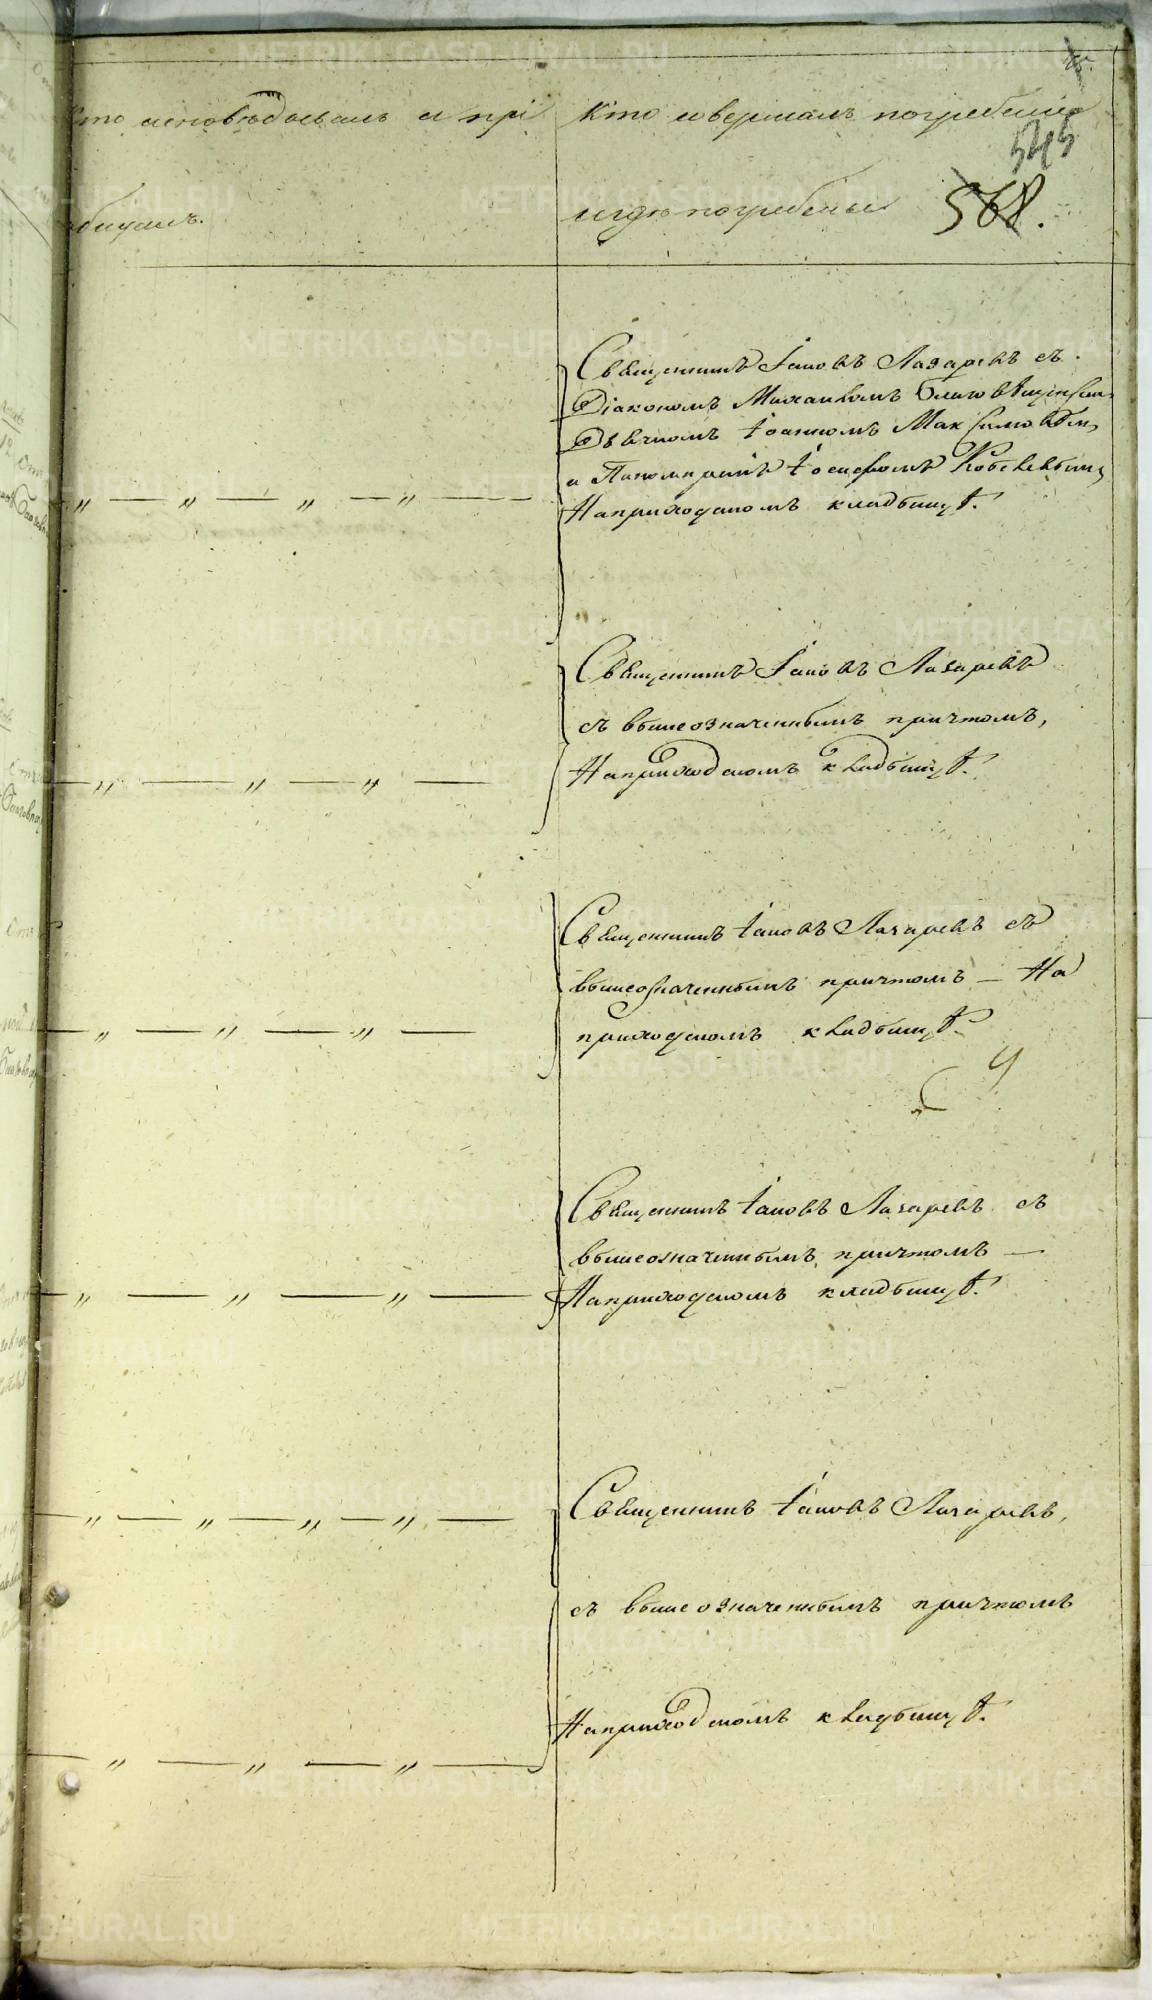 Кто исповѣдывалъ и прі
общалъ.
Кто совершалъ погребеніе
и гдѣ погребены
545
568.
Священникъ Іаковъ Лазаревъ съ
Діакономъ Михаиломъ
Дьячкомъ Іоанномъ Максимовымъ
и Пономаремъ Іосифомъ
На приходскомъ кладбищѣ.
Священникъ Іаковъ Лазаревъ
съ вышеозначеннымъ причтомъ,
На приходскомъ кладбищѣ.
Священникъ Іаковъ Лазаревъ съ
вышеозначеннымъ причтомъ — На
приходскомъ кладбищѣ.
Священникъ Іаковъ Лазаревъ съ
вышеозначеннымъ причтомъ —
На приходскомъ кладбищѣ.
Священникъ Іаковъ Лазаревъ,
съ вышеозначеннымъ причтомъ
На приходскомъ кладбищѣ.
METRIKI.GASO-URAL.RU